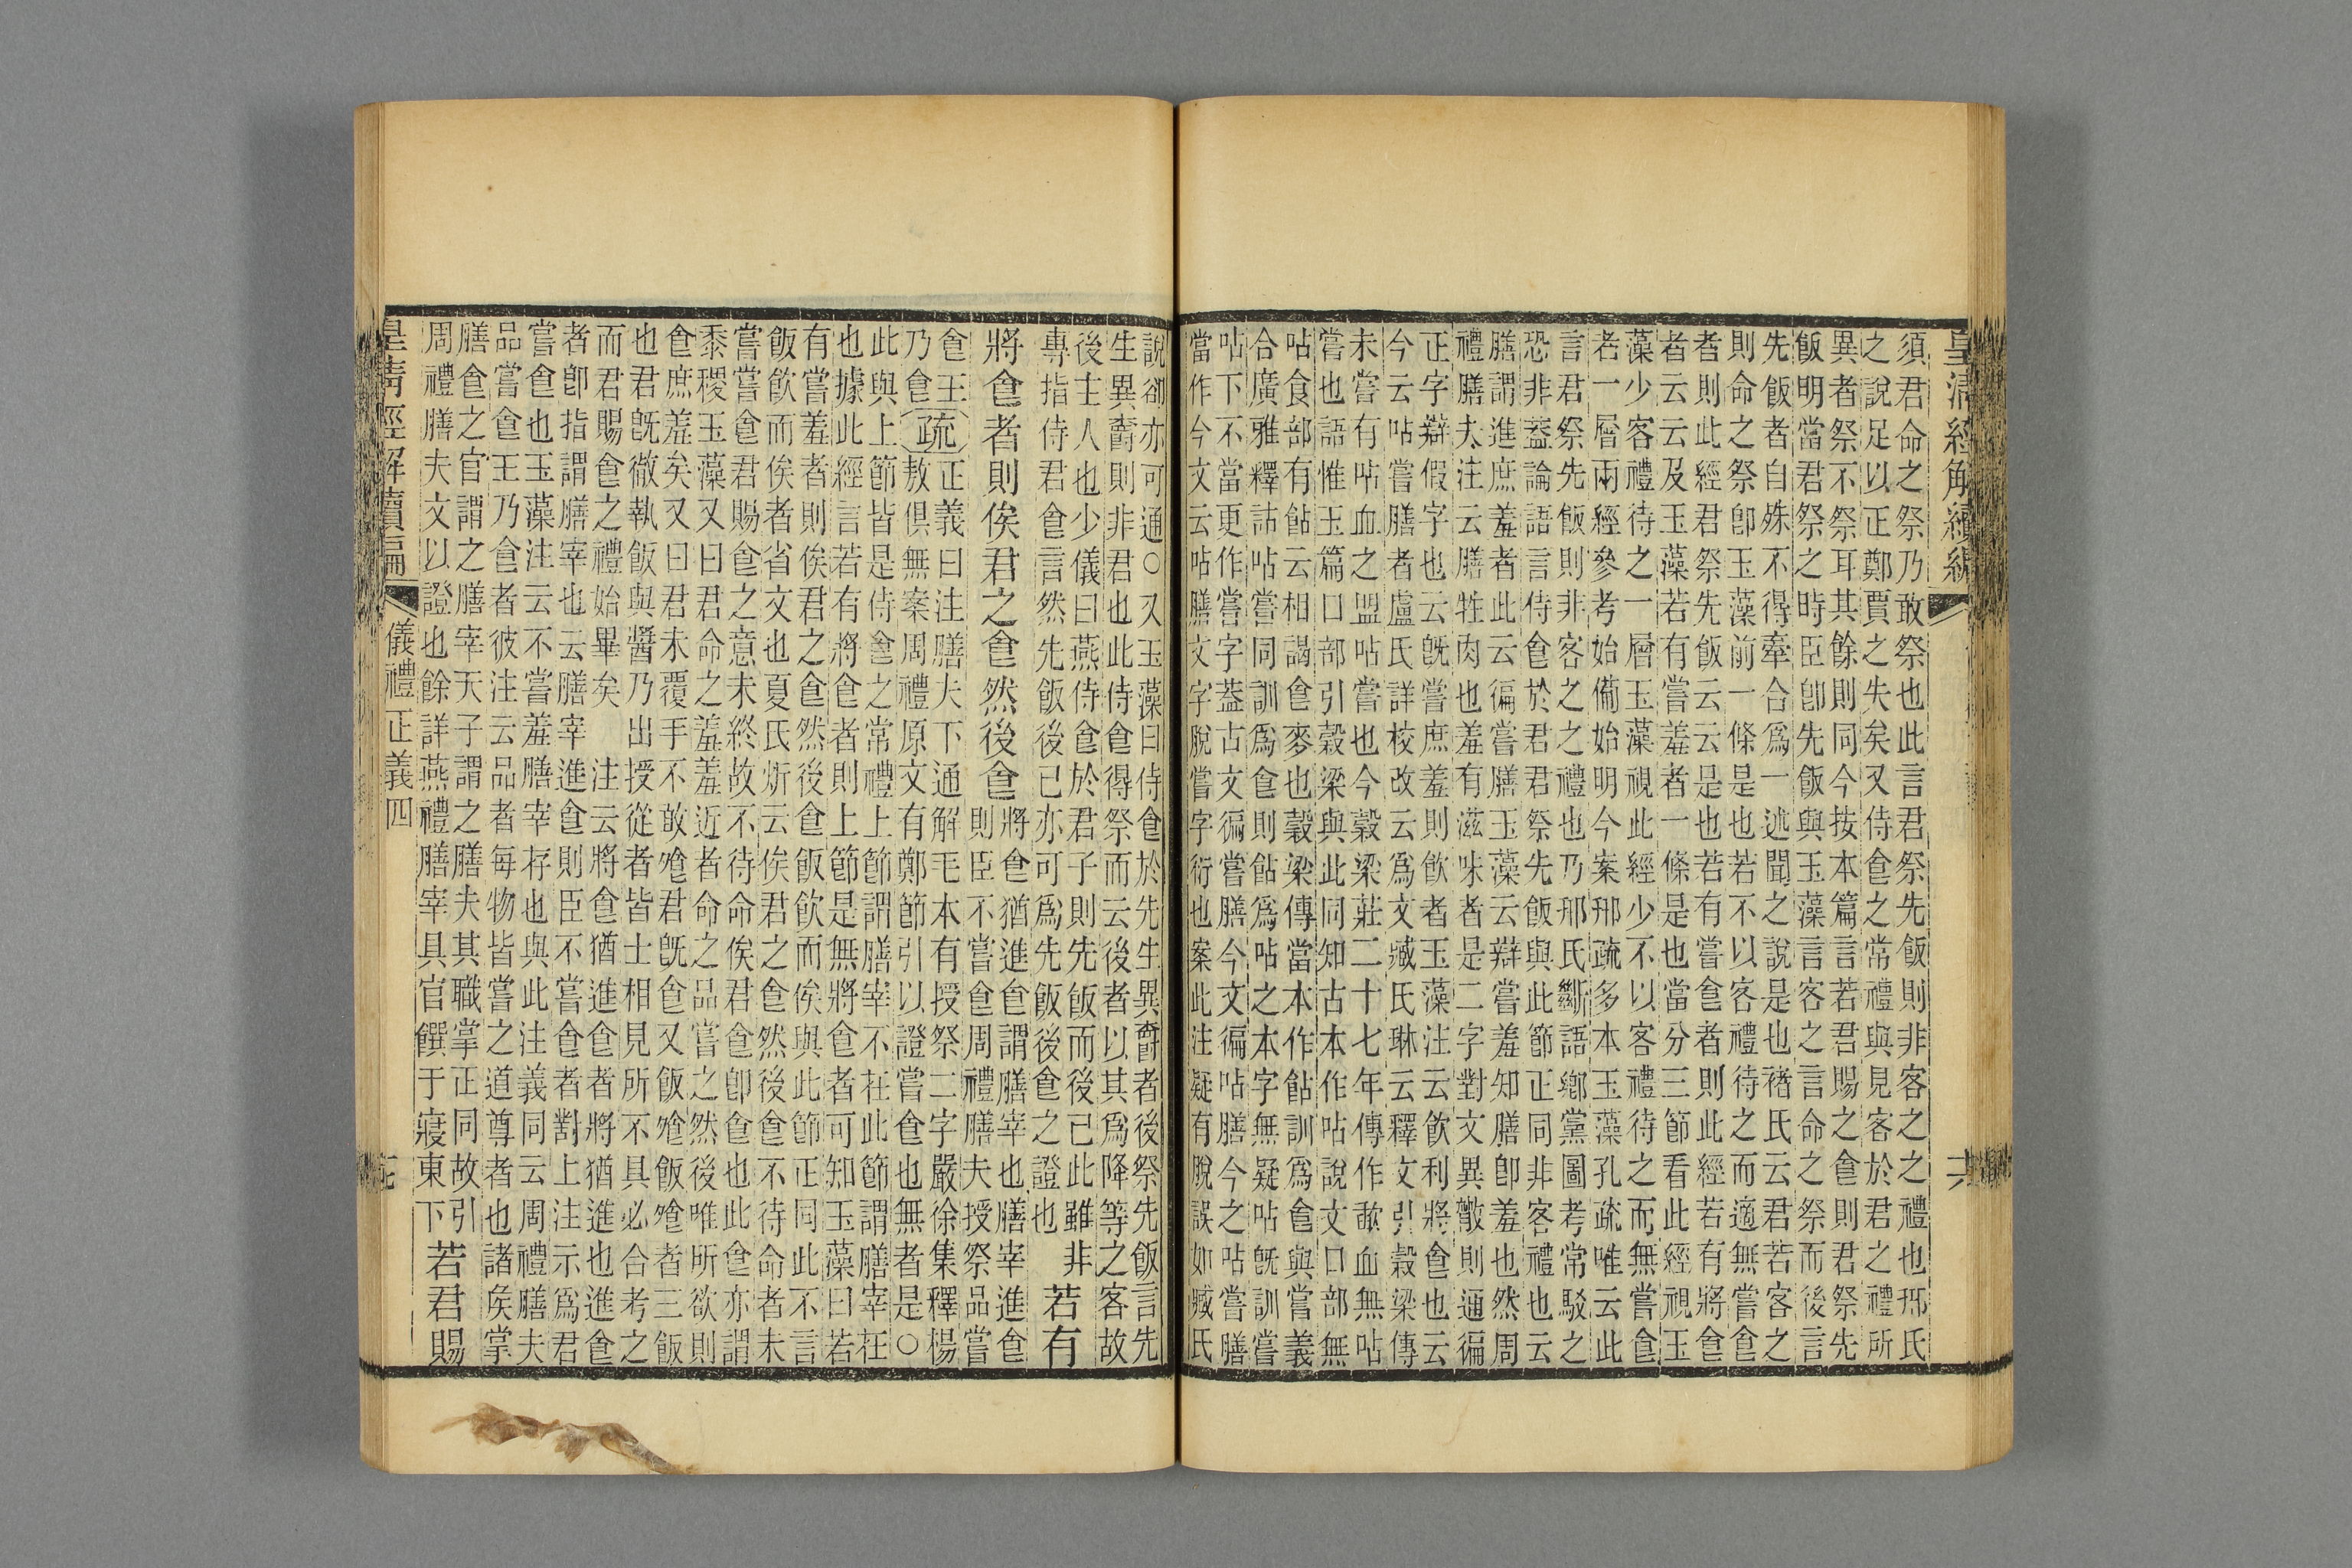 皇清經解續編
須君命之祭乃敢祭也此言君祭先飯則非客之之禮也邢氏
之說足以正鄭賈之失矣又侍食之常禮與見客於君之禮所
異者祭不祭耳其餘則同今按本篇言若君賜之食則君祭先
飯明當君祭之時臣卽先飯與玉藻言客之言命之祭而後言
先飯者自殊不得牽合爲一述聞之說是也褚氏云君若客之
則命之祭卽玉藻前一條是也若不以客禮待之而適無嘗食
者則此經君祭先飯云云是也若有嘗食者則此經若有將食
者云云及玉藻若有嘗羞者一條是也當分三節看此經視玉
藻少客禮待之一層玉藻視此經少不以客禮待之而無嘗食
者一層兩經參考始備始明今案邢疏多本玉藻孔疏唯云此
言君祭先飯則非客之之禮也乃邢氏斷語鄉黨圖考常駮之
恐非蓋論語言侍食於君君祭先飯與此節正同非客禮也云
膳謂進庶羞者此云徧嘗膳玉藻云辯嘗羞知膳卽羞也然周
禮膳夫注云膳牲肉也羞有滋味者是二字對文異散則通徧
正字辯假字也云旣嘗庶羞則飲者玉藻注云飲利將食也云
今云呫嘗膳者盧氏詳校改云爲文臧氏琳云釋文引穀梁傳
未嘗有呫血之盟呫嘗也今穀梁莊二十七年傳作歃血無呫
嘗也語惟玉篇口部引穀梁與此同知古本作呫說文口部無
呫食部有飴云相謁食麥也穀梁傳當本作飴訓爲食與嘗義
合廣雅釋詁呫嘗同訓爲食則飴爲呫之本字無疑呫旣訓嘗
呫下不當更作嘗字蓋古文徧嘗膳今文徧呫膳今之呫嘗膳
當作今文云呫膳文字脫嘗字衍也案此注疑有脫誤如臧氏
說卻亦可通○又玉藻曰侍食於先生異爵者後祭先飯言先
生異爵則非君也此侍食得祭而云後者以其爲降等之客故
後士人也少儀曰燕侍食於君子則先飯而後已此雖非
專指侍君食言然先飯後已亦可爲先飯後食之證也　若有
將食者則俟君之食然後食
將食猶進食謂膳宰也膳宰進食
則臣不嘗食周禮膳夫授祭品嘗
食王
乃食
疏
正義曰注膳夫下通解毛本有授祭二字嚴徐集釋楊
敖俱無案周禮原文有鄭節引以證嘗食也無者是○
此與上節皆是侍食之常禮上節謂膳宰不在此節謂膳宰在
也據此經言若有將食者則上節是無將食者可知玉藻曰若
有嘗羞者則俟君之食然後食飯飲而俟與此節正同此不言
飯飲而俟者省文也夏氏炘云俟君之食然後食不待命者未
嘗嘗食君賜食之意未終故不待命俟君食卽食也此食亦謂
黍稷玉藻又曰君命之羞羞近者命之品嘗之然後唯所欲則
食庶羞矣又曰君未覆手不敢飧君旣食又飯飧飯飧者三飯
也君旣徹執飯與醬乃出授從者皆士相見所不具必合考之
而君賜食之禮始畢矣　注云將食猶進食者將猶進也進食
者卽指謂膳宰也云膳宰進食則臣不嘗食者對上注示爲君
嘗食也玉藻注云不嘗羞膳宰存也與此注義同云周禮膳夫
品嘗食王乃食者彼注云品者每物皆嘗之道尊者也諸侯掌
膳食之官謂之膳宰天子謂之膳夫其職掌正同故引
周禮膳夫文以證也餘詳燕禮膳宰具官饌于寢東下　若君賜
皇清經解續編　儀禮正義四